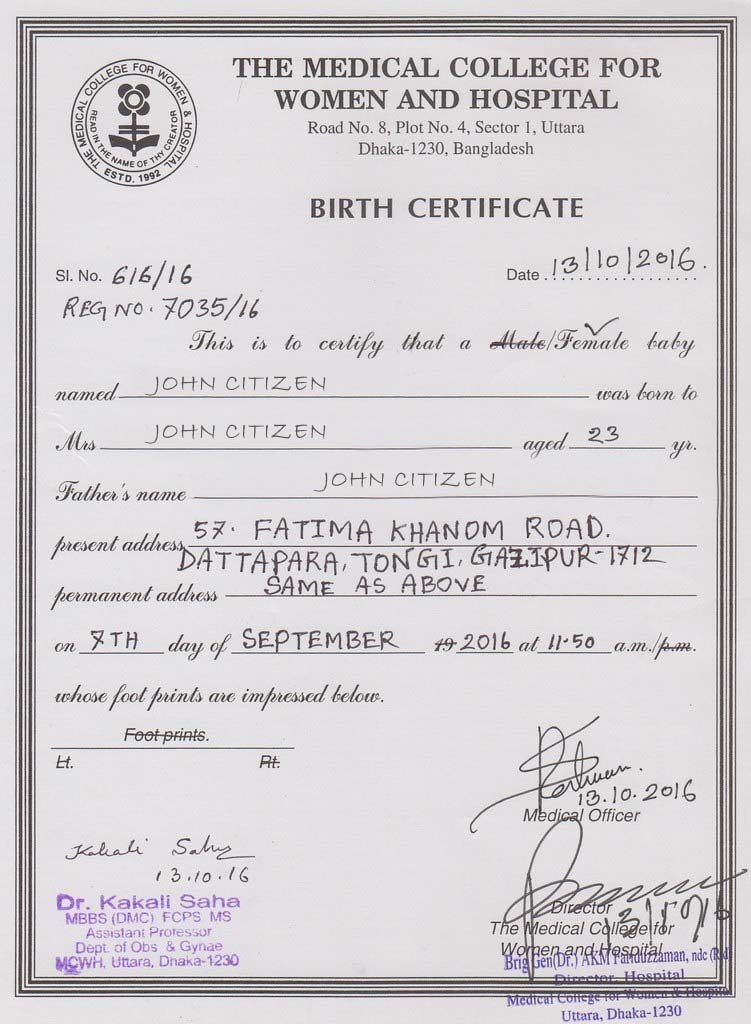 THE MEDICAL COLLEGE FOR WOMEN & HOSPITAL
READ IN THE NAME OF THY CREATOR
ESTD. 1992
THE MEDICAL COLLEGE FOR
WOMEN AND HOSPITAL
Road No. 8, Plot No. 4, Sector 1, Uttara
Dhaka-1230, Bangladesh
BIRTH CERTIFICATE
Sl. No. 616/16 Date 13/10/2016.
REG NO. 7035/16
This is to certify that a Male/Female baby
named JOHN CITIZEN was born to
Mrs JOHN CITIZEN aged 23 yr.
Father's name JOHN CITIZEN
present address 57. FATIMA KHANOM ROAD.
DATTAPARA, TONGI, GAZIPUR-1712
permanent address SAME AS ABOVE
on 7TH day of SEPTEMBER 19 2016 at 11.50 a.m./p.m.
whose foot prints are impressed below.
Foot prints.
Lt. Rt.
13.10.2016
Medical Officer
Kakali Saha
13.10.16
Dr. Kakali Saha
MBBS (DMC) FCPS MS
Assistant Professor
Dept. of Obs & Gynae
MCWH, Uttara, Dhaka-1230
Director
The Medical College for
Women and Hospital
Brig Gen (Dr.) AKM Fariduzzaman, ndc (Rtd)
Director, Hospital
Medical College for Women & Hospital
Uttara, Dhaka-1230